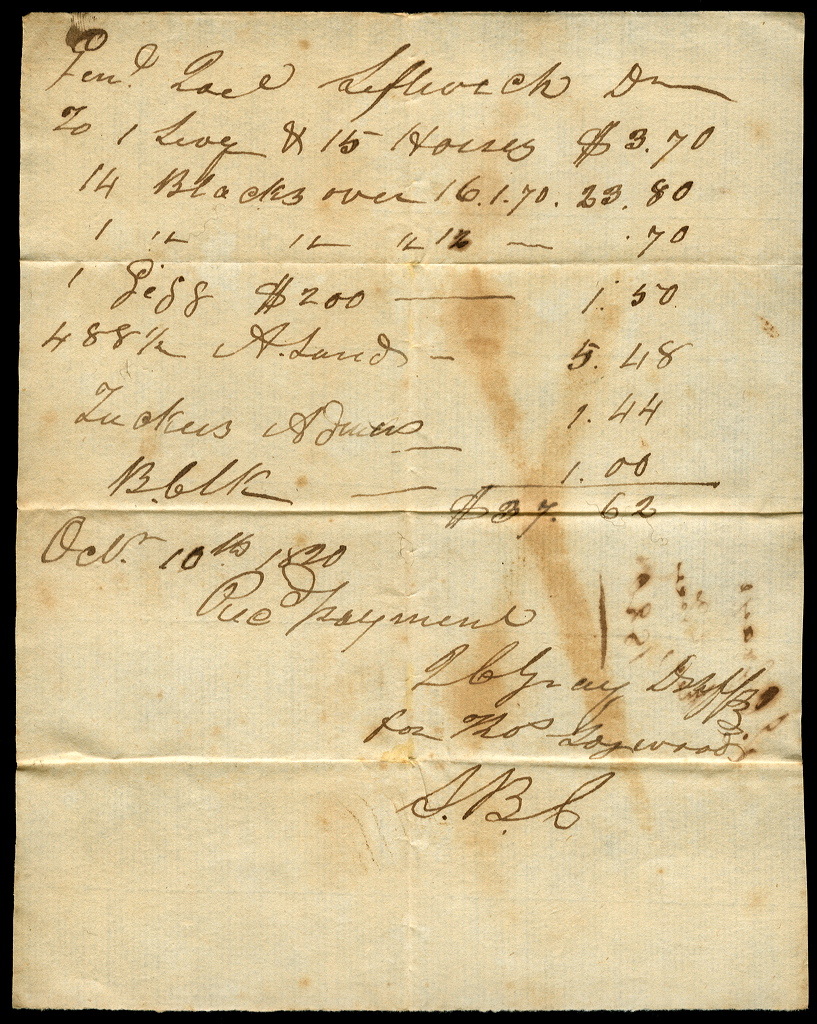 Genl. Joel Leftwich Dr
To 1 Levy & 15 Horses $3.70
14 Blacks over 16.1.70. 23.80
1 " " " 12 — .70
1 Gigg $200 — 1.50
488½ A. Land — 5.48
Tuckers Admrs — 1.44
B. Clk — 1.00
$37.62
Octr. 10th 1820
Recd payment
Gray DShff
for Thos
S.B.C